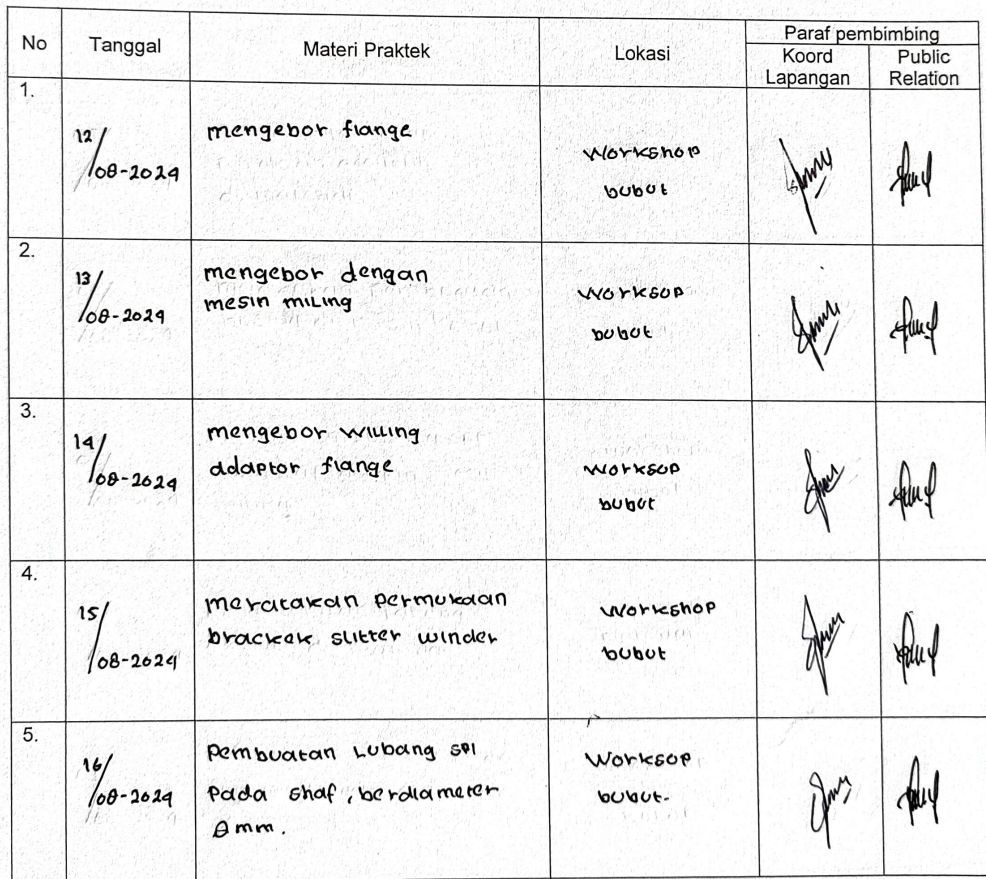 No Tanggal Materi Praktek Lokasi Paraf pembimbing
Koord Lapangan Public Relation
1.
12/08-2024
mengebor flange
Workshop
bubut
2.
13/08-2024
mengebor dengan
mesin miling
Worksop
bubut
3.
14/08-2024
mengebor
adaptor flange
Worksop
bubut
4.
15/08-2024
meratakan permukaan
brackek slitter winder
Workshop
bubut
5.
16/08-2024
Pembuatan Lubang spi
pada shaf, berdiameter
8 mm.
Worksop
bubut.